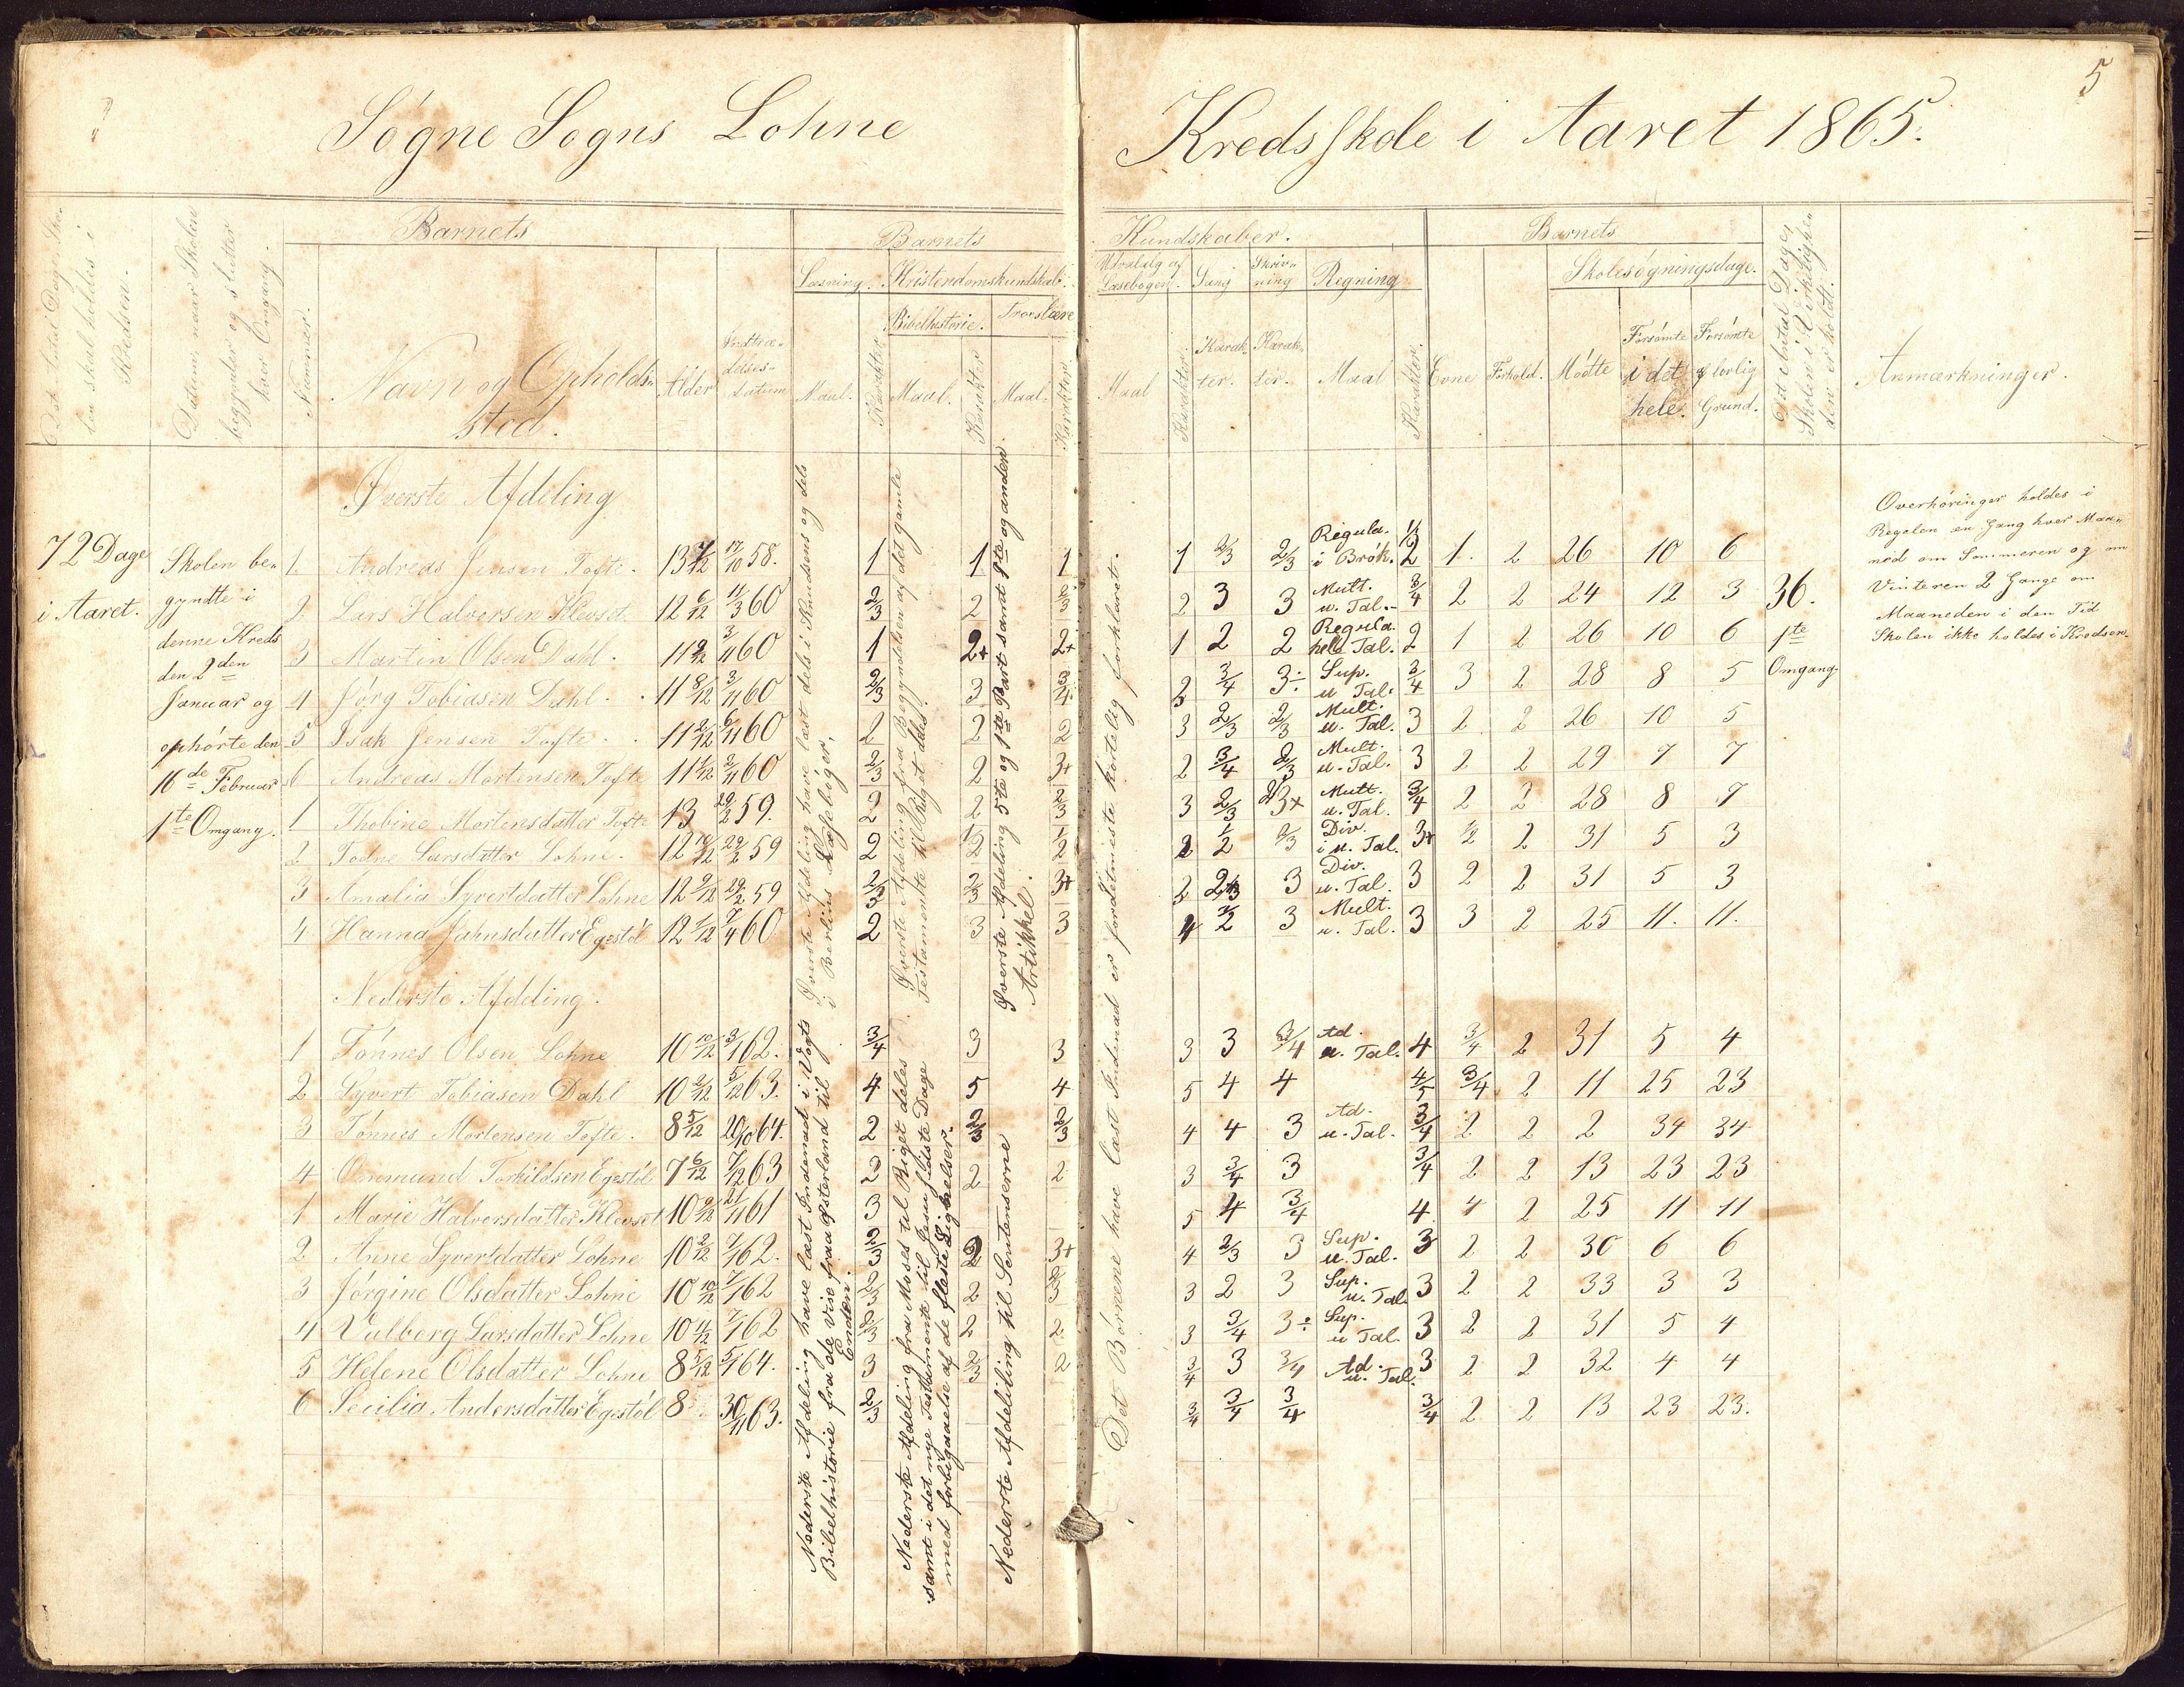 5
Søgne Sogns Lohne Kredsskole i Aaret 1865.
Det Antal Dage Skolen skal holdes i Kredsen.
Datum, naar Skolen begynder og slutter hver Omgang.
Barnets
Nummer.
Navn og Opholdssted.
Alder
Indtrædelsesdatum
Barnets Kundskaber.
Læsning. Kristendomskundskab.
Bibelhistorie. Troeslære
Maal. Karakter Maal. Karakter Maal. Karakter
Udvalg af Læsebogen. Sang Skrivning Regning
Maal Karakter. Karakter. Karakter. Maal Karakter.
Barnets
Evne Forhold. Skolesøgningsdage.
Mødte Forsømte i det hele. Forsømte af lovlig Grund.
Det Antal Dage Skolen i Virkeligheden er holdt.
Anmærkninger.
72 Dage
i Aaret.
Skolen be-
gyndte i
denne Kreds
den 2den
Januar og
ophørte den
16de Februar
1te Omgang.
Øverste Afdeling
1. Andreas Jensen Tofte. 13 7/12 17/10 58. 1 1 1 1 2/3 2/3 Regula. i Brøk. 1/2 1. 2 26 10 6
2 Lars Halvorsen Klevset. 12 6/12 11/3 60 2/3 2 2/3 2 3 3 Mult. u. Tal. 3/4 2 2 24 12 3
3 Martin Olsen Dahl. 11 9/12 3/11 60 1 2+ 2+ 1 2 2 Regula. hele Tal. 2 1 2 26 10 6
4 Jørg Tobiasen Dahl. 11 8/12 3/11 60 2/3 3 3/4 2 3/4 3÷ Sup. u Tal. 3/4 3 2 28 8 5
5 Isak Jensen Tofte. 11 2/12 6/11 60 2 2 2 3 2/3 2/3 Mult. u. Tal. 3 2 2 26 10 5
6 Andreas Mortensen Tofte 11 1/12 2/11 60 2/3 2 3+ 2 3/4 2/3 Mult. u. Tal. 3 2 2 29 7 7
1 Thobine Mortensdatter Tofte 13 29/2 59. 2 2 2/3 3 2/3 2/3+ Mult. u. Tal. 3/4 2 2 28 8 7
2 Todne Larsdatter Lohne. 12 10/12 29/2 59 2 1/2 1/2 2 1/2 2/3 Div. i u. Tal. 3+ 1/2 2 31 5 3
3 Amalia Syvertdatter Lohne 12 9/12 29/2 59 2/3 2/3 3+ 2 2/3 3 Div. u. Tal. 3 2 2 31 5 3
4 Hanna Jahnsdatter Egestøl 12 1/12 7/4 60 2 3 3 4 3/2 3 Mult. u. Tal. 3 3 2 25 11. 11.
36.
1te
Omgang.
Overhøringer holdes i
Regelen en Gang hver Maa-
ned om Sommeren og om
Vinteren 2 Gange om
Maaneden i den Tid
Skolen ikke holdes i Kredsen.
Øverste Afdeling have læst dels i Sandsens og dels
i Berlins Læsebøger.
Øverste Afdeling fra Begyndelsen af det gamle
Testamente til Riget deles.
Øverste Afdeling 5te og 1te Part samt 1te og anden
Artikkel.
Det Børnene have læst Indenad er fordetmeste kortelig forklaret.
Nederste Afdeling.
1 Tønnes Olsen Lohne 10 10/12 3/1 62. 3/4 3 3 3 3 3/4 Ad. u. Tal. 4 3/4 2 31 5 4
2 Syvert Tobiasen Dahl 10 2/12 5/12 63. 4 5 4 5 4 4 4/5 3/4 2 11 25 23
3 Tønnes Mortensen Tofte. 8 5/12 20/10 64. 2 2/3 2/3 4 4 3 Ad. u. Tal. 3/4 2 2 2 34 34
4 Onmund Torkildsen Egestøl 7 6/12 7/12 63 2 2 2 3 3/4 3 3/4 2 2 13 23 23
1 Marie Halvorsdatter Klevset 10 9/12 21/11 61 3 5 4 3/4 4 4 2 25 11 11
2 Anne Syvertdatter Lohne 10 2/12 7/1 62. 2/3 2 3+ 4 2/3 3 Sup. u. Tal. 3 2 2 30 6 6
3 Jørgine Olsdatter Lohne 10 10/12 7/1 62 2/3 2 2/3 3 2 3 Sup. u. Tal. 3 2 2 33 3 3
4 Valborg Larsdatter Lohne 10 4/12 7/1 62 2/3 2 2 3 3/4 3÷ Sup. u Tal. 3 2 2 31 5 4
5 Helene Olsdatter Lohne 8 5/12 5/1 64. 3 2/3 2 3/4 3 3/4 Ad. u. Tal. 3 2 2 32 4 4
6 Secilia Andersdatter Egestøl 8 30/11 63. 2/3 3/4 3/4 3/4 3/4 2 2 13 23 23.
Nederste Afdeling have læst Indenad i Vogts
Bibelhistorie fra de vise fraa Østerland til
Enden.
Nederste Afdeling fra Moses til Riget deles
samt i det nye Testamente til Jesu sidste Dage
med forbigaaelse af de fleste Lignelser.
Nederste Afdeliling til Sentenserne